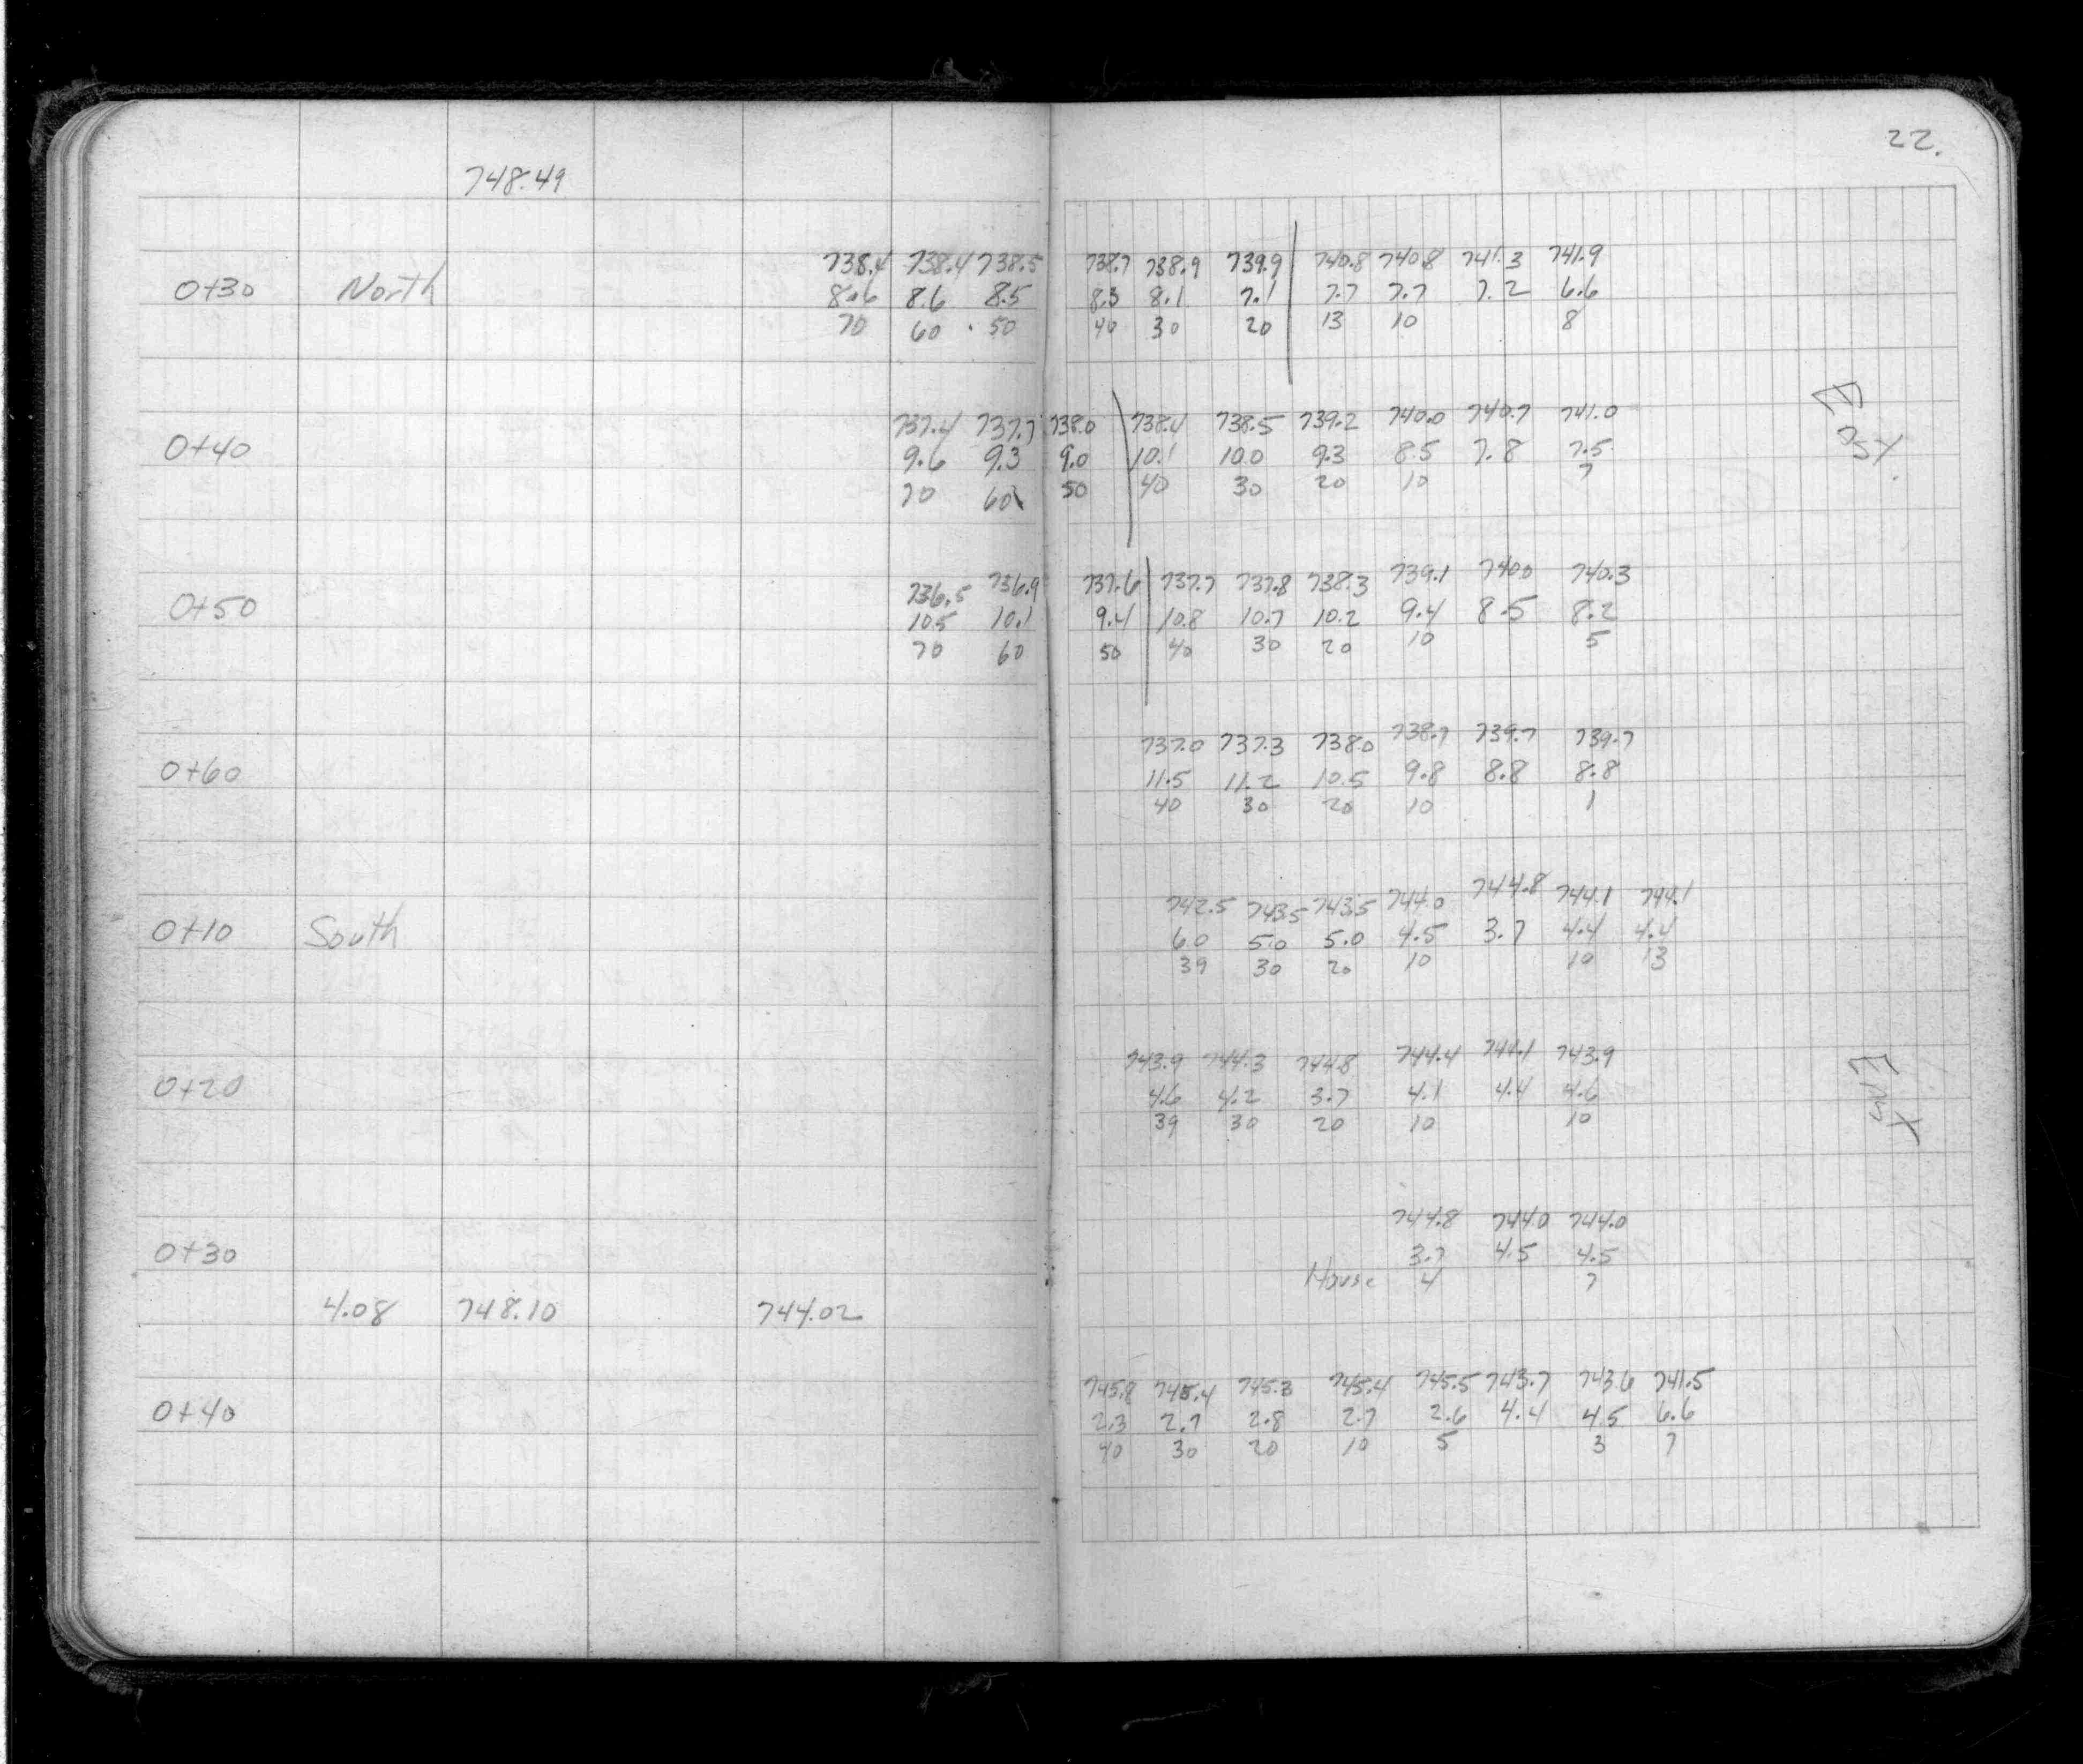 22.
748.49
738.4 738.4 738.5 738.7 738.9 739.9 740.8 740.8 741.3 741.9
0+30 North 8.6 8.6 8.5 8.3 8.1 7.1 7.7 7.7 7.2 6.6
70 60 50 40 30 20 13 10 8
737.4 737.7 738.0 738.4 738.5 739.2 740.0 740.7 741.0
0+40 9.6 9.3 9.0 10.1 10.0 9.3 8.5 7.8 7.5
70 60 50 40 30 20 10 7
736.5 736.9 737.6 737.7 737.8 738.3 739.1 740.0 740.3
0+50 10.5 10.1 9.4 10.8 10.7 10.2 9.4 8.5 8.2
70 60 50 40 30 20 10 5
737.0 737.3 738.0 738.7 739.7 739.7
0+60 11.5 11.2 10.5 9.8 8.8 8.8
40 30 20 10 1
742.5 743.5 743.5 744.0 744.8 744.1 744.1
0+10 South 6.0 5.0 5.0 4.5 3.7 4.4 4.4
39 30 20 10 10 13
743.9 744.3 744.8 744.4 744.1 743.9
0+20 4.6 4.2 3.7 4.1 4.4 4.6
39 30 20 10 10
744.8 744.0 744.0
0+30 3.7 4.5 4.5
House 4 7
4.08 748.10 744.02
745.8 745.4 745.3 745.4 745.5 743.7 743.6 741.5
0+40 2.3 2.7 2.8 2.7 2.6 4.4 4.5 6.6
40 30 20 10 5 3 7